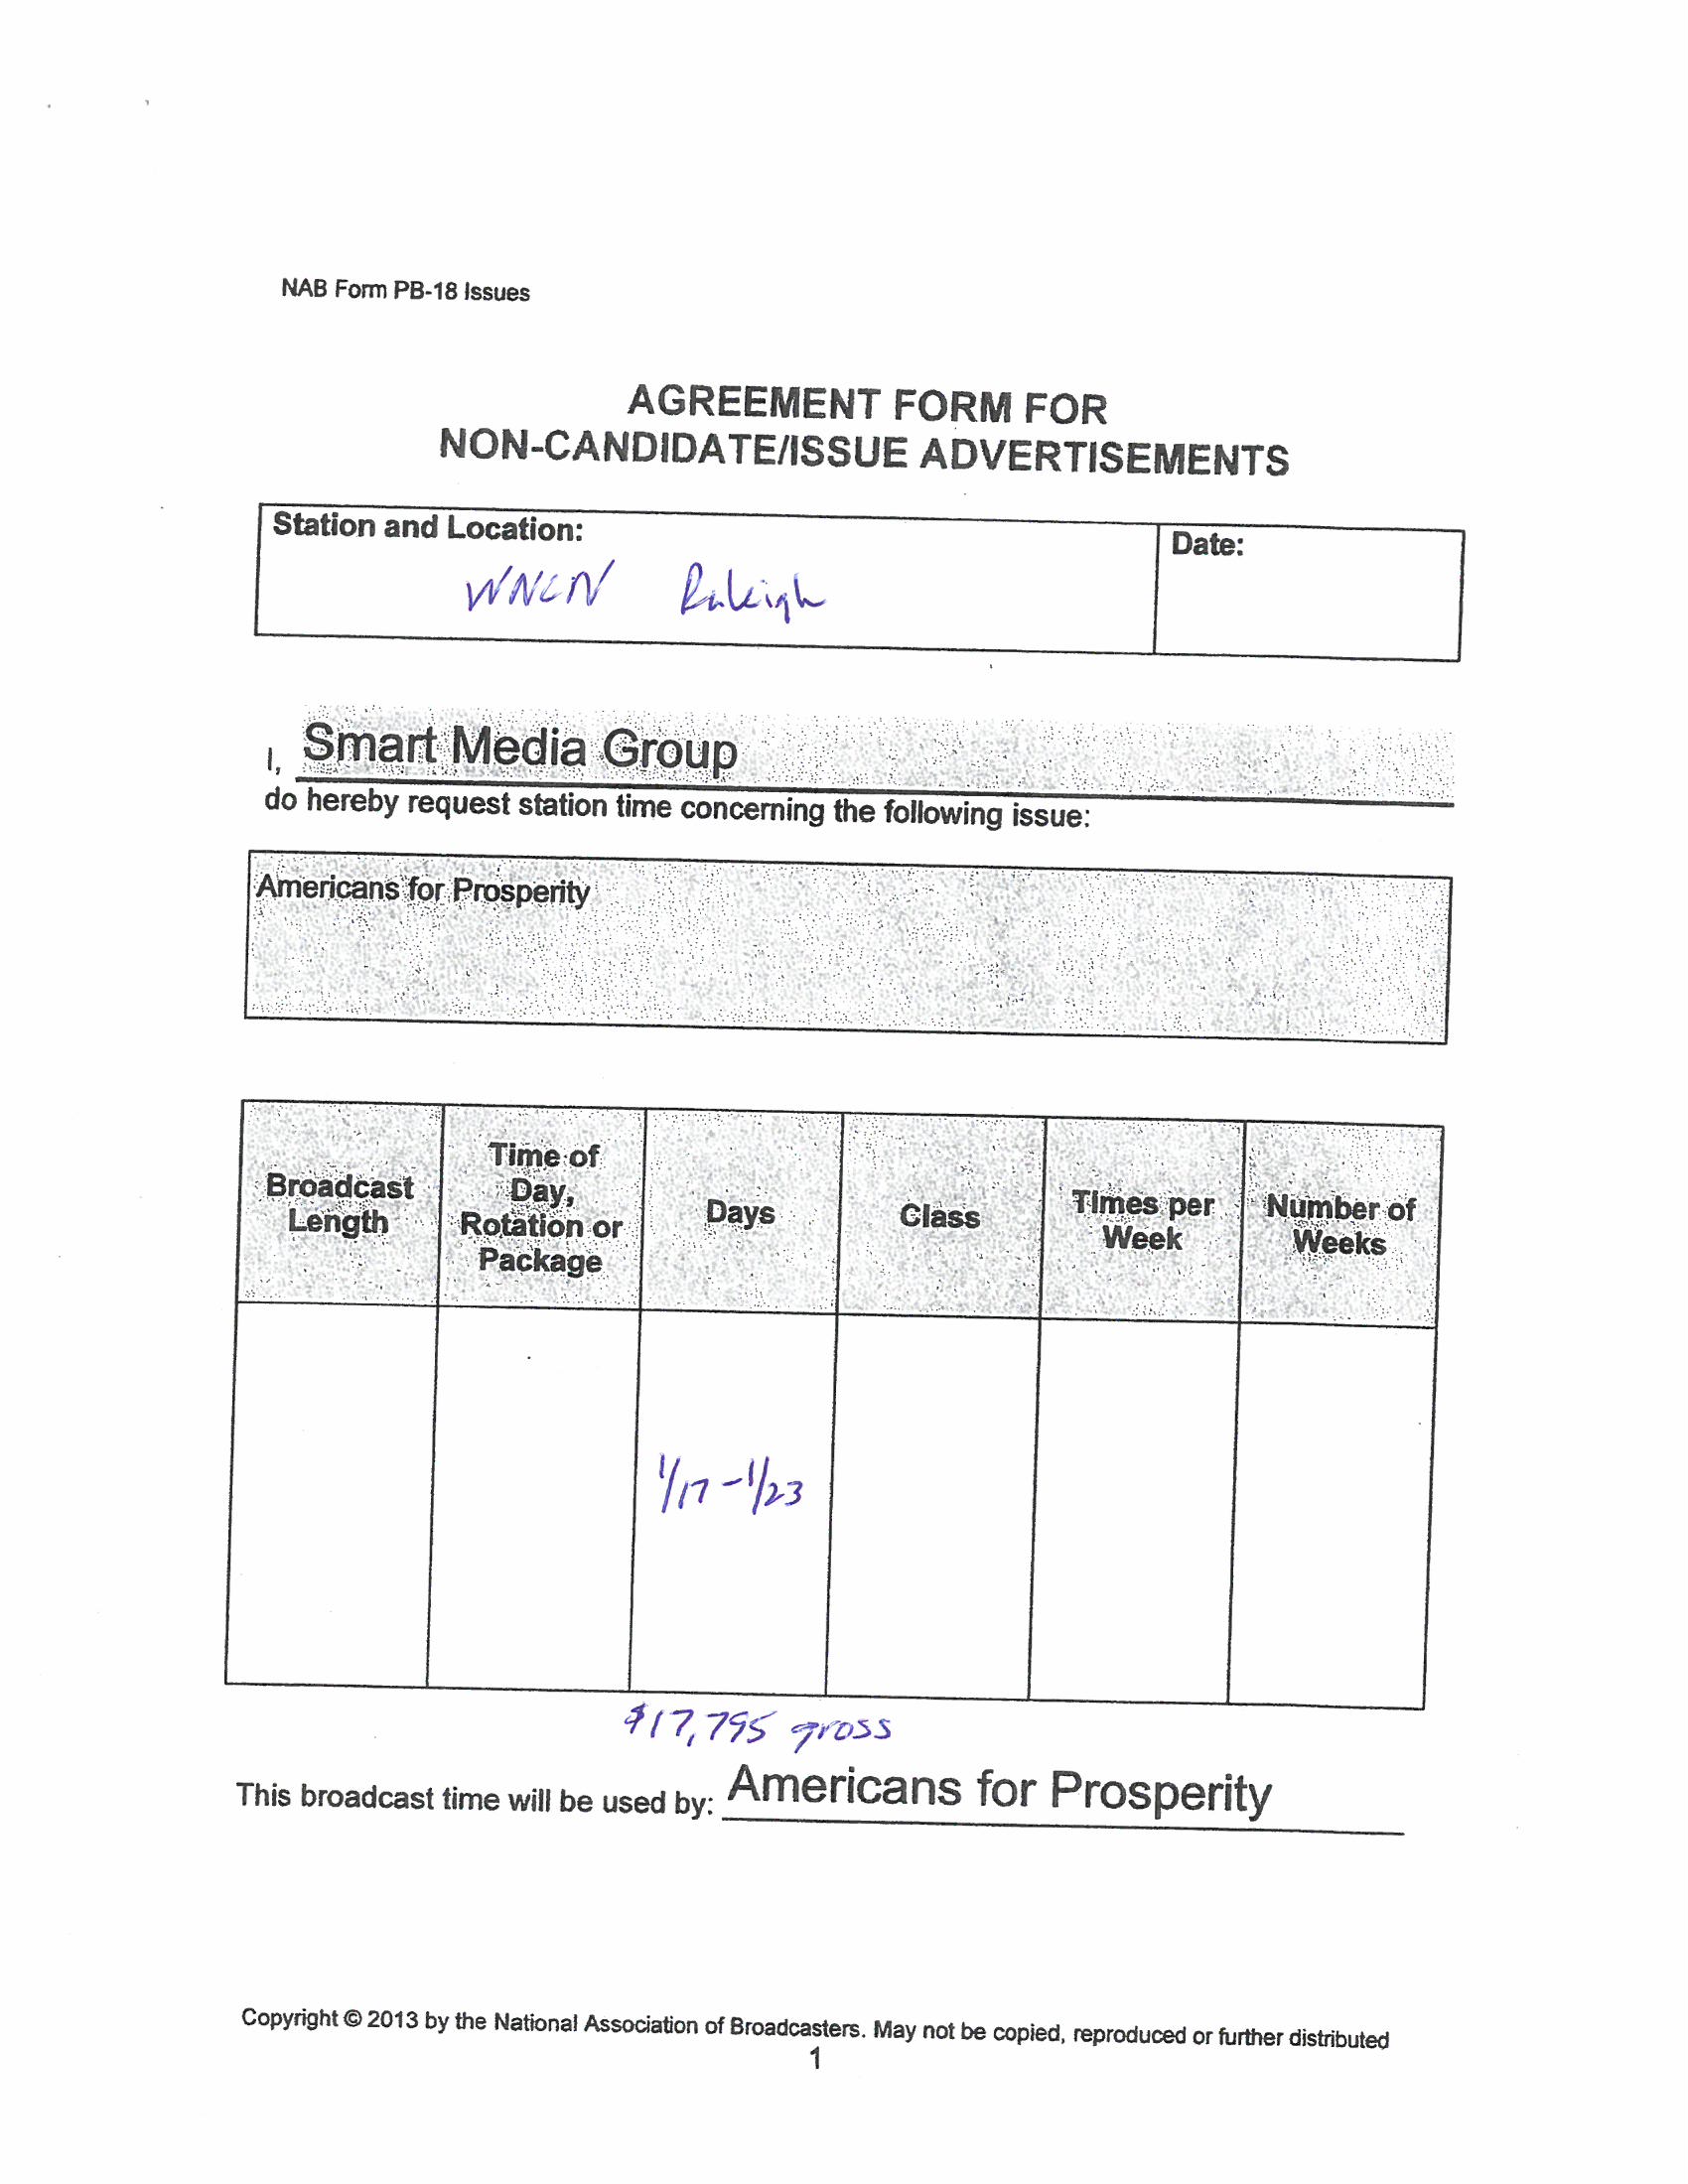 NAB Form PB-18 Issues
AGREEMENT FORM FOR
NON-CANDIDATE/ISSUE ADVERTISEMENTS
Station and Location:
Date:
WNCN Raleigh
I, Smart Media Group
do hereby request station time concerning the following issue:
Americans for Prosperity
Broadcast Length
Time of Day, Rotation or Package
Days
Class
Times per Week
Number of Weeks
1/17 - 1/23
$17,795 gross
This broadcast time will be used by: Americans for Prosperity
Copyright © 2013 by the National Association of Broadcasters. May not be copied, reproduced or further distributed
1